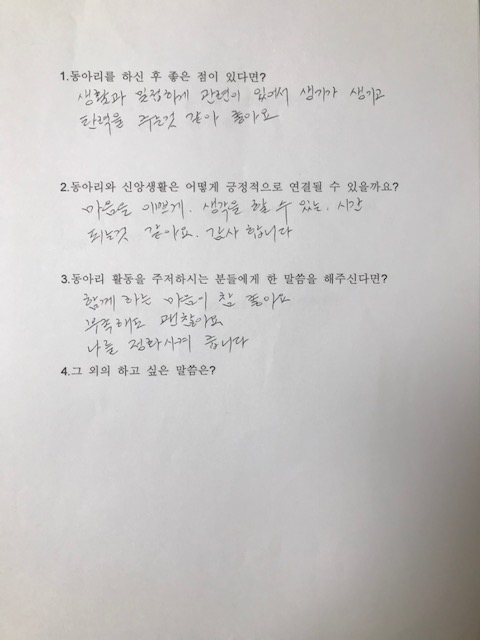 1.동아리를 하신 후 좋은 점이 있다면?
생활과 밀접하게 관련이 있어서 생기가 생기고
탄력을 주는것 같아 좋아요
2.동아리와 신앙생활은 어떻게 긍정적으로 연결될 수 있을까요?
마음을 예쁘게. 생각을 할 수 있는. 시간
되는것 같아요. 감사 합니다
3.동아리 활동을 주저하시는 분들에게 한 말씀을 해주신다면?
함께 하는 마음이 참 좋아요
부족해도 괜찮아요
나를 정화시켜 줍니다
4.그 외의 하고 싶은 말씀은?